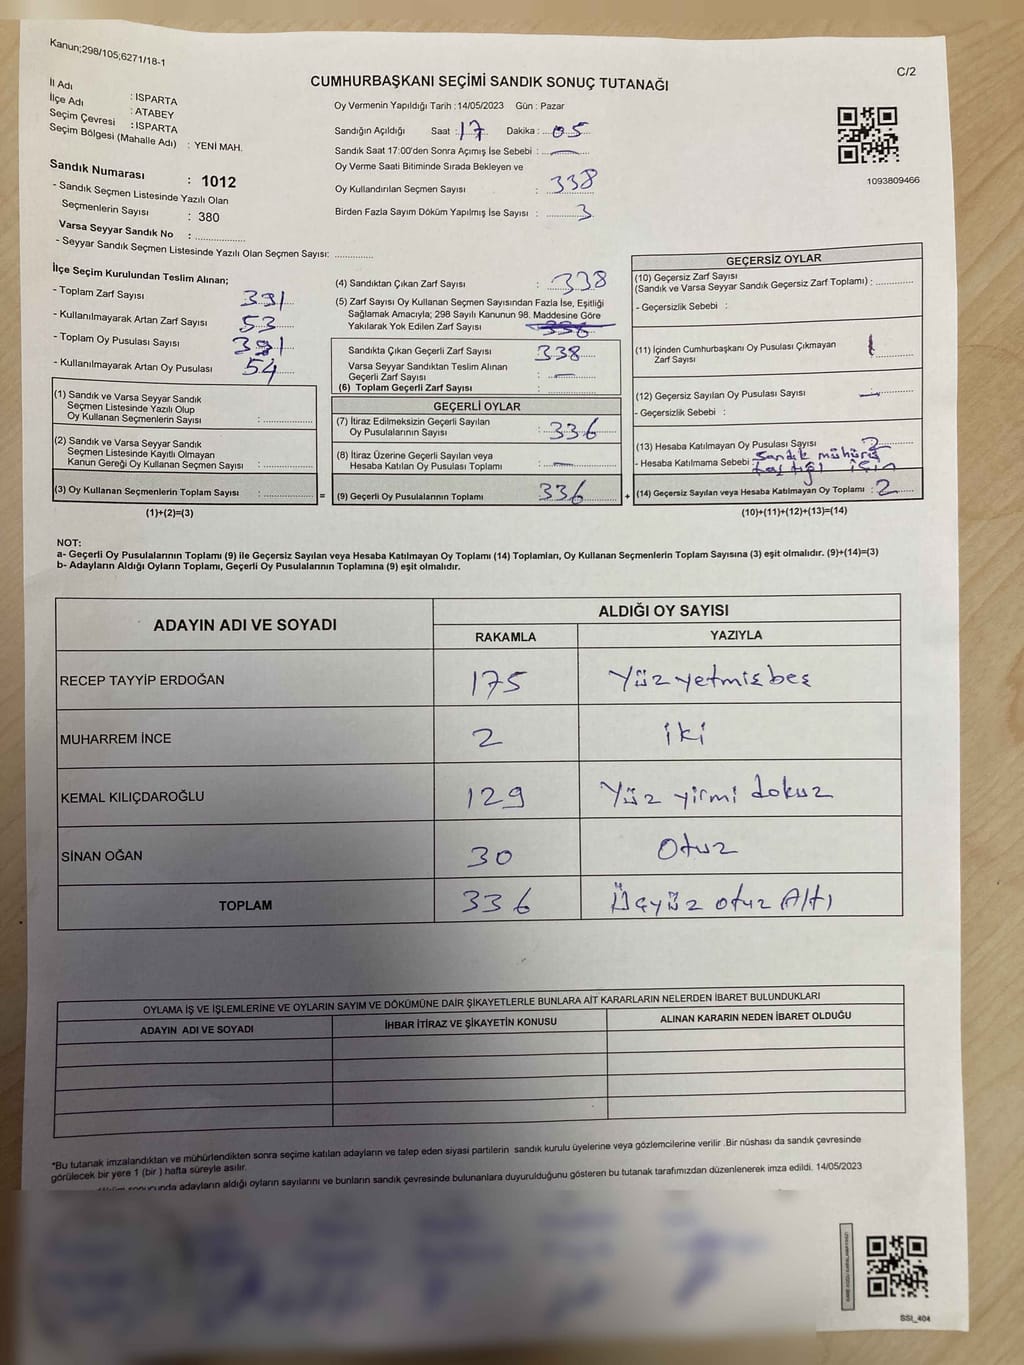 Kanun;298/105;6271/18-1
C/2
CUMHURBAŞKANI SEÇİMİ SANDIK SONUÇ TUTANAĞI
İl Adı : ISPARTA
İlçe Adı : ATABEY
Seçim Çevresi : ISPARTA
Seçim Bölgesi (Mahalle Adı) : YENİ MAH.
Sandık Numarası : 1012
- Sandık Seçmen Listesinde Yazılı Olan
Seçmenlerin Sayısı : 380
Varsa Seyyar Sandık No : ................
- Seyyar Sandık Seçmen Listesinde Yazılı Olan Seçmen Sayısı: ............
Oy Vermenin Yapıldığı Tarih :14/05/2023 Gün : Pazar
Sandığın Açıldığı Saat : 17 Dakika : 05
Sandık Saat 17:00'den Sonra Açımış İse Sebebi : —
Oy Verme Saati Bitiminde Sırada Bekleyen ve
Oy Kullandırılan Seçmen Sayısı : 338
Birden Fazla Sayım Döküm Yapılmış İse Sayısı : 3
1093809466
İlçe Seçim Kurulundan Teslim Alınan;
- Toplam Zarf Sayısı 391
- Kullanılmayarak Artan Zarf Sayısı 53
- Toplam Oy Pusulası Sayısı 391
- Kullanılmayarak Artan Oy Pusulası 54
(1) Sandık ve Varsa Seyyar Sandık
Seçmen Listesinde Yazılı Olup
Oy Kullanan Seçmenlerin Sayısı : ............
(2) Sandık ve Varsa Seyyar Sandık
Seçmen Listesinde Kayıtlı Olmayan
Kanun Gereği Oy Kullanan Seçmen Sayısı : ............
(3) Oy Kullanan Seçmenlerin Toplam Sayısı : ............ =
(1)+(2)=(3)
(4) Sandıktan Çıkan Zarf Sayısı : 338
(5) Zarf Sayısı Oy Kullanan Seçmen Sayısından Fazla İse, Eşitliği
Sağlamak Amacıyla; 298 Sayılı Kanunun 98. Maddesine Göre
Yakılarak Yok Edilen Zarf Sayısı : 336
Sandıkta Çıkan Geçerli Zarf Sayısı 338
Varsa Seyyar Sandıktan Teslim Alınan
Geçerli Zarf Sayısı : —
(6) Toplam Geçerli Zarf Sayısı : ............
GEÇERLİ OYLAR
(7) İtiraz Edilmeksizin Geçerli Sayılan
Oy Pusulalarının Sayısı : 336
(8) İtiraz Üzerine Geçerli Sayılan veya
Hesaba Katılan Oy Pusulası Toplamı : —
(9) Geçerli Oy Pusulalarının Toplamı : 336 +
GEÇERSİZ OYLAR
(10) Geçersiz Zarf Sayısı
(Sandık ve Varsa Seyyar Sandık Geçersiz Zarf Toplamı) : ............
- Geçersizlik Sebebi :
(11) İçinden Cumhurbaşkanı Oy Pusulası Çıkmayan
Zarf Sayısı :
(12) Geçersiz Sayılan Oy Pusulası Sayısı : —
- Geçersizlik Sebebi :
(13) Hesaba Katılmayan Oy Pusulası Sayısı : 2
- Hesaba Katılmama Sebebi : Sandık mühürü
taştığı için
(14) Geçersiz Sayılan veya Hesaba Katılmayan Oy Toplamı : 2
(10)+(11)+(12)+(13)=(14)
NOT:
a- Geçerli Oy Pusulalarının Toplamı (9) ile Geçersiz Sayılan veya Hesaba Katılmayan Oy Toplamı (14) Toplamları, Oy Kullanan Seçmenlerin Toplam Sayısına (3) eşit olmalıdır. (9)+(14)=(3)
b- Adayların Aldığı Oyların Toplamı, Geçerli Oy Pusulalarının Toplamına (9) eşit olmalıdır.
ADAYIN ADI VE SOYADI
ALDIĞI OY SAYISI
RAKAMLA YAZIYLA
RECEP TAYYİP ERDOĞAN 175 Yüz yetmişbeş
MUHARREM İNCE 2 iki
KEMAL KILIÇDAROĞLU 129 Yüz yirmi dokuz
SİNAN OĞAN 30 Otuz
TOPLAM 336 Üçyüz otuz Altı
OYLAMA İŞ VE İŞLEMLERİNE VE OYLARIN SAYIM VE DÖKÜMÜNE DAİR ŞİKAYETLERLE BUNLARA AİT KARARLARIN NELERDEN İBARET BULUNDUKLARI
ADAYIN ADI VE SOYADI İHBAR İTİRAZ VE ŞİKAYETİN KONUSU ALINAN KARARIN NEDEN İBARET OLDUĞU
*Bu tutanak imzalandıktan ve mühürlendikten sonra seçime katılan adayların ve talep eden siyasi partilerin sandık kurulu üyelerine veya gözlemcilerine verilir .Bir nüshası da sandık çevresinde
görülecek bir yere 1 (bir ) hafta süreyle asılır.
sonucunda adayların aldığı oyların sayılarını ve bunların sandık çevresinde bulunanlara duyurulduğunu gösteren bu tutanak tarafımızdan düzenlenerek imza edildi. 14/05/2023
SSI_404